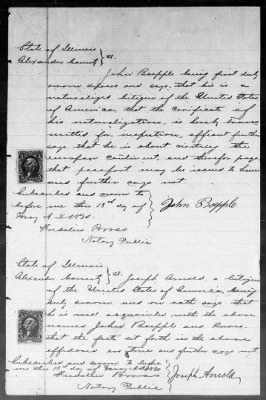 State of Illinois
Alexander County } SS.
John Bopple being first duly
sworn deposes and says, that he is a
naturalized citizen of the United States
of America, that the certificate of
his naturalization, is hereby
mitted for inspection, affiant further
says that he is about visiting the
european continent, and therefor prays
that passport may be issued to him
and further says not.
Subscribed and sworn to
before me this 18th day of
May A D 18
John Bopple
Notary Public
State of Illinois
Alexander County } SS. Joseph Arnold a citizen
of the United States of America, being
duly sworn on oath says that he
is well acquainted with the above
named John Bopple and knows
that the facts set forth in the above
affidavit are true and further says not
Subscribed and sworn to before
me this 18th day of May A D
Joseph Arnold
Notary Public